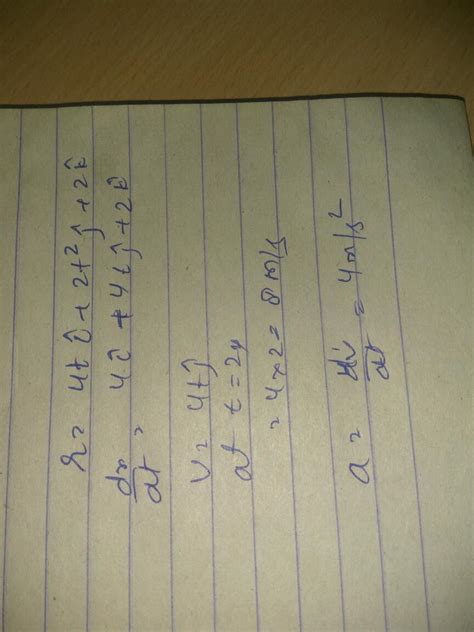 r = 4t î + 2t² ĵ + 2k̂
dr/dt = 4î + 4t ĵ + 2k̂
v = 4t ĵ
at t = 2s
= 4×2 = 8 m/s
a = dv/dt = 4m/s²